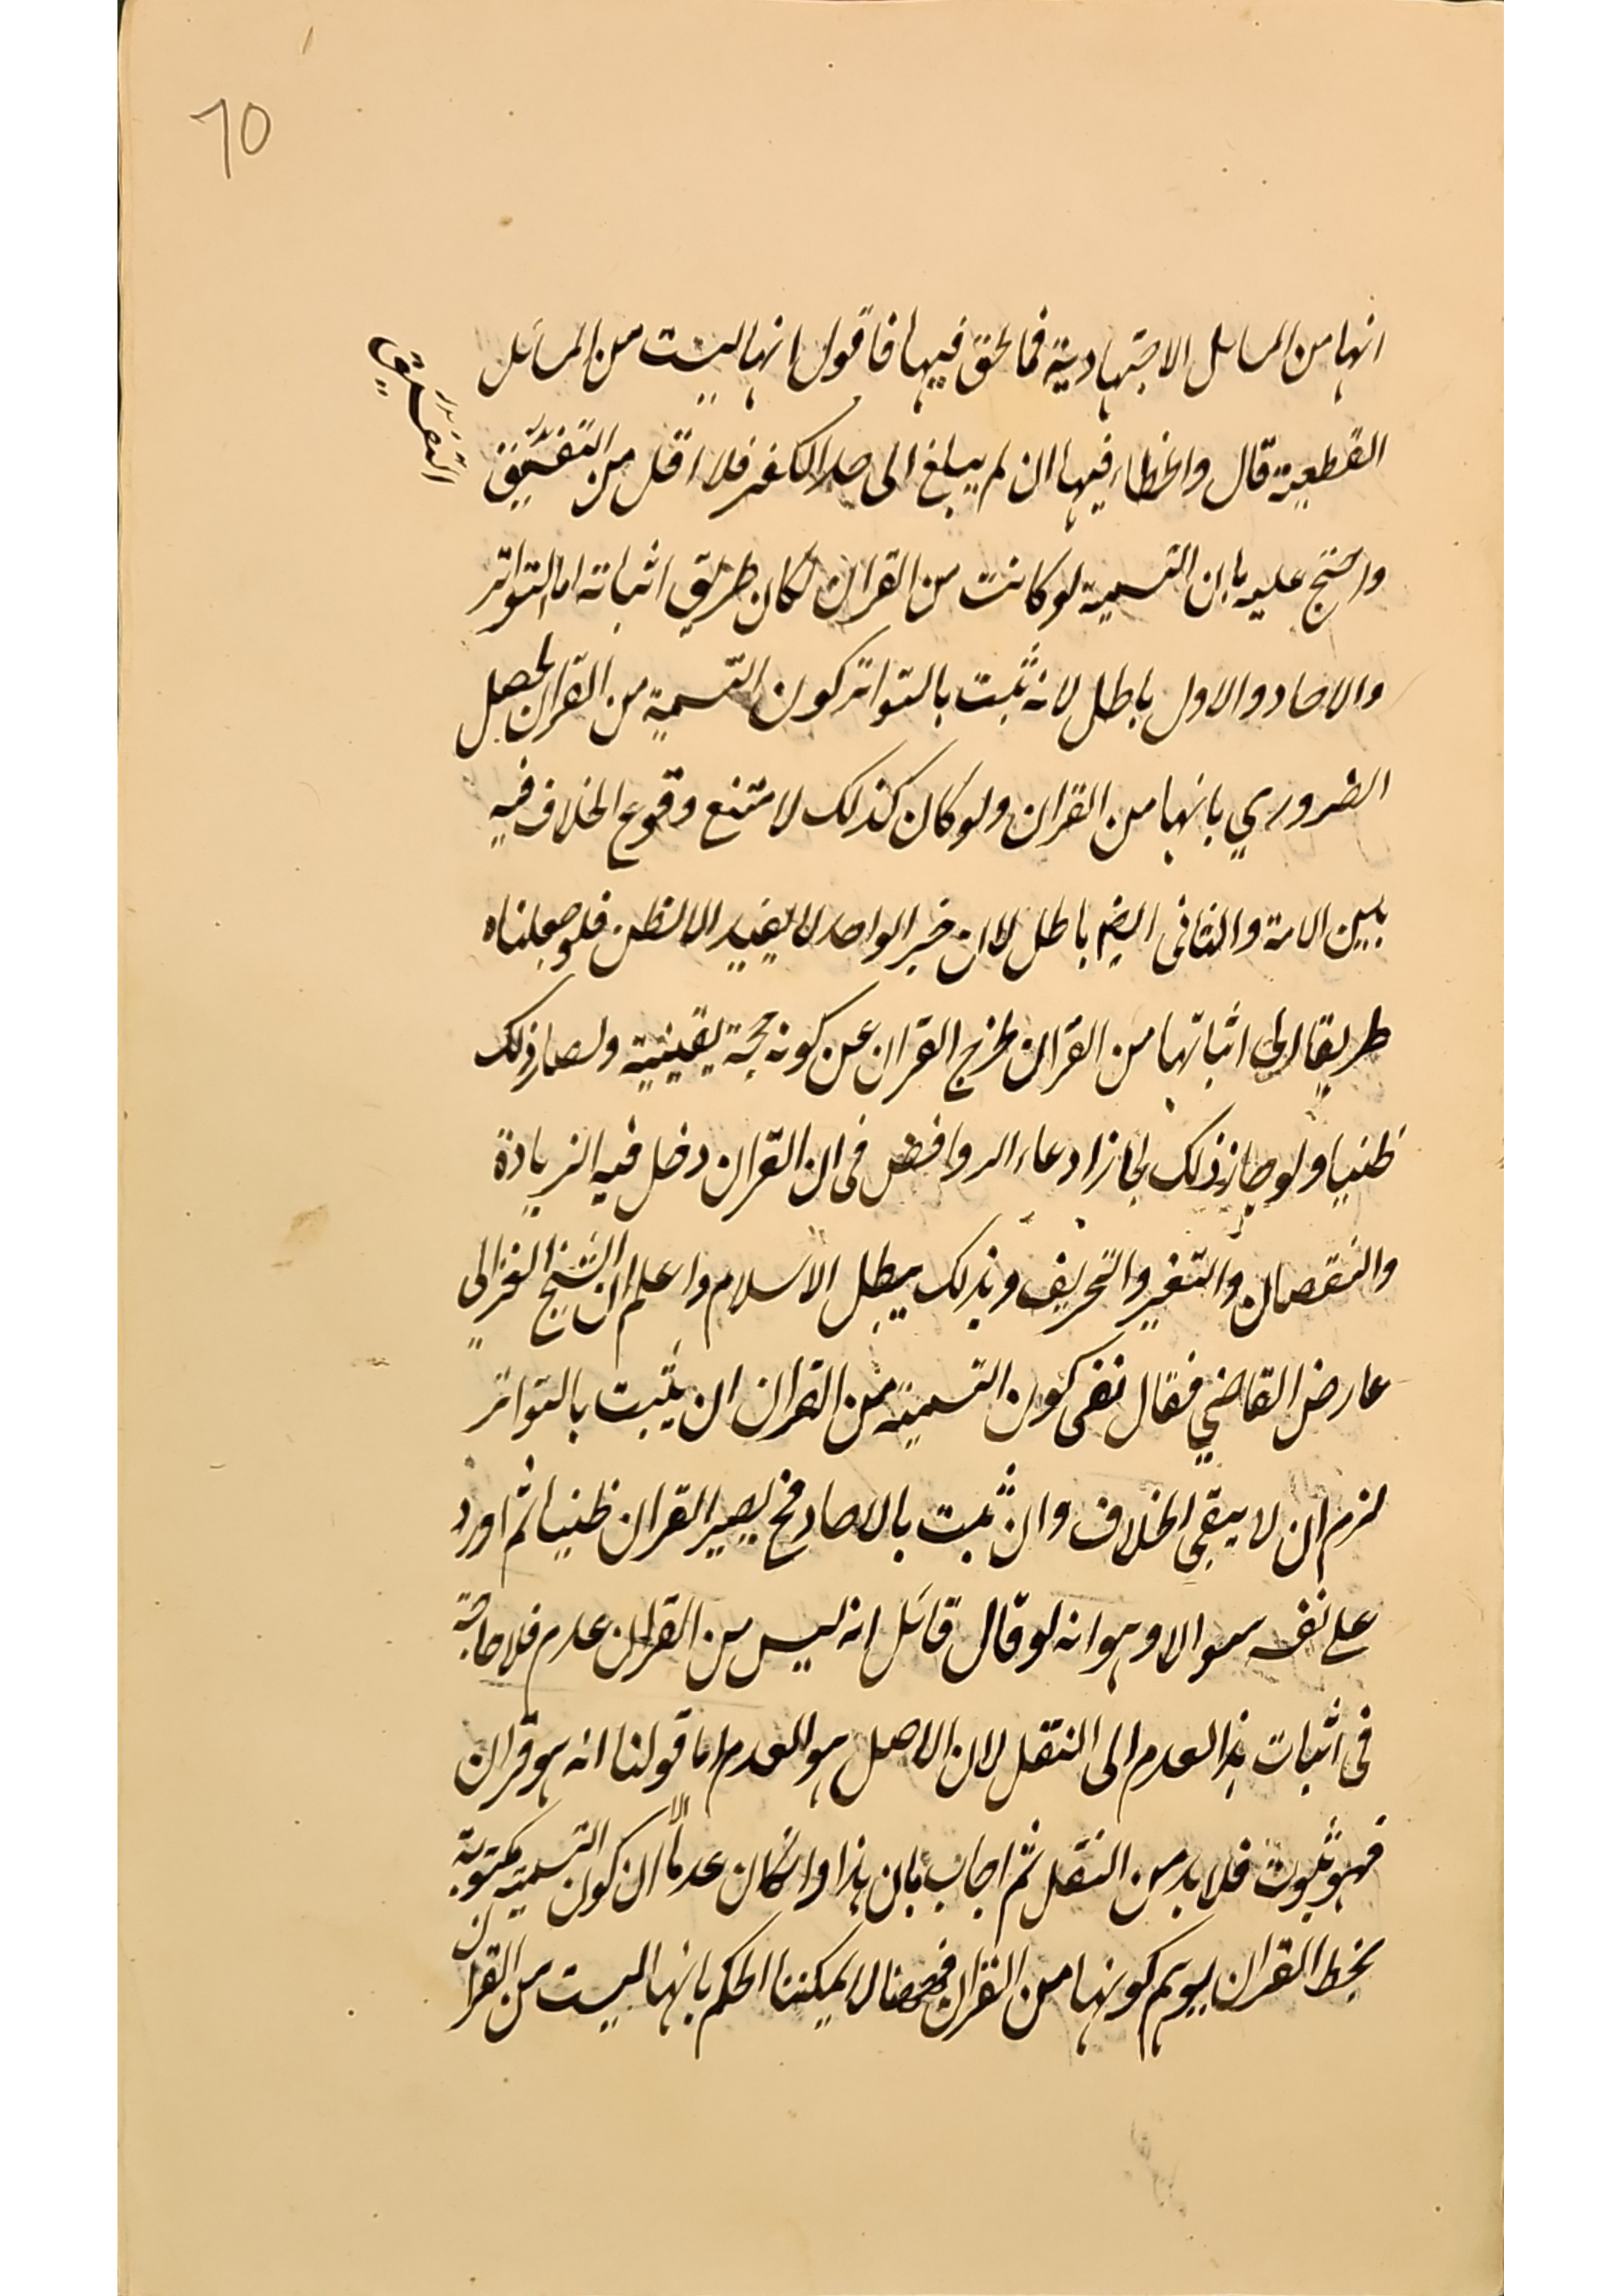 10
انها من المسائل الاجتهادية فما الحق فيها فاقول انها ليست من المسائل
القطعية قال والخطاء فيها ان لم يبلغ الى حد الكفر فلا اقل من التفسيق
واحتج عليه بان التسمية لو كانت من القران لكان طريق اثباته اما التواتر
والاحاد والاول باطل لانه ثبت بالتواتر كون التسمية من القران لحصل
الضروري بانها من القران ولو كان كذلك لامتنع وقوع الخلاف فيه
بين الامة والثانى ايضم باطل لان خبر الواحد لا يفيد الا الظن فلو جعلناه
طريقا الى اثباتها من القران لخرج القران عن كونه حجة يقينية ولصار ذلك
ظنيا ولو جاز ذلك لجاز ادعاء الروافض فى ان القران دخل فيه الزيادة
والنقصان والتغير والتحريف وبذلك يبطل الاسلام واعلم ان الشيخ الغزالى
عارض القاضي فقال نفى كون التسمية من القران ان يثبت بالتواتر
لزم ان لا يبقى الخلاف وان ثبت بالاحاد فح يصير القران ظنيا ثم اورد
على نفسه سوالا وهو انه لو قال قائل انه ليس من القران عدم فلا حاجة
فى اثبات هذا العدم الى النقل لان الاصل هو العدم اما قولنا انه هو قران
فهو ثبوت فلا بد من النقل ثم اجاب بان هذا وان كان عدما الا ان كون التسمية مكتوبة
بخط القران يوهم كونها من القران فههنا لا يمكننا الحكم بانها ليست من القران